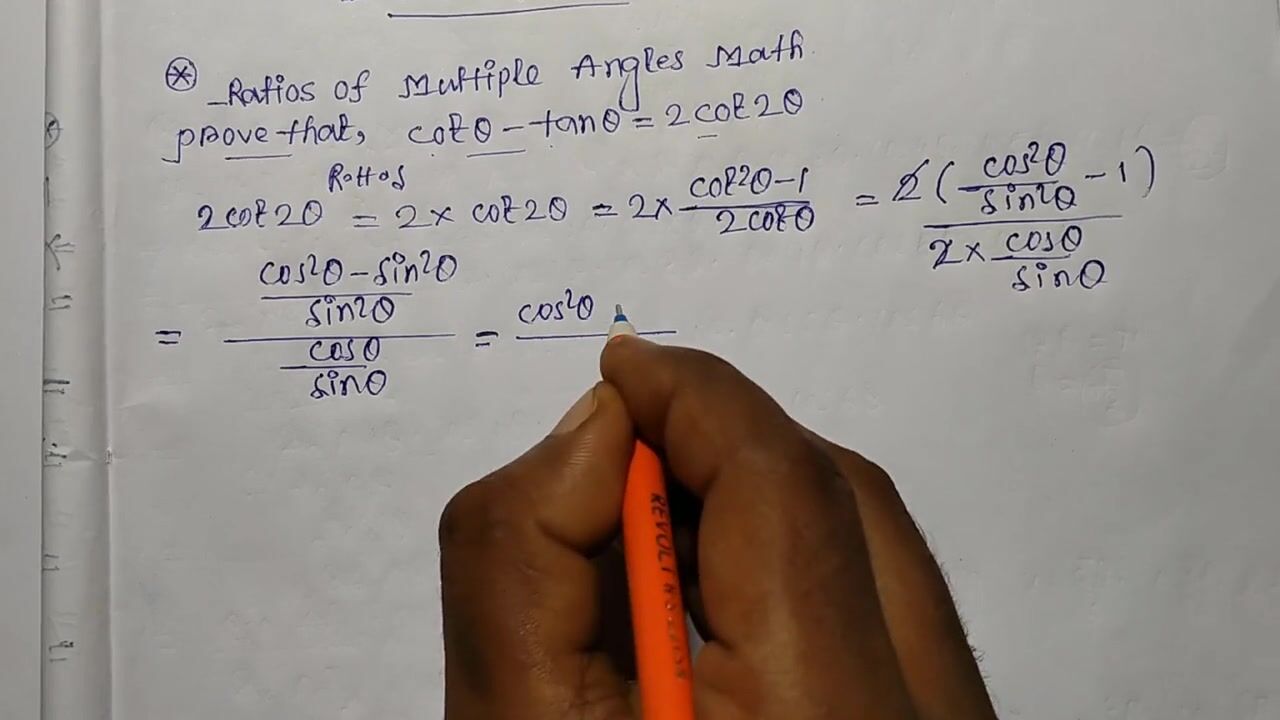 Ratios of Multiple Angles Math
prove that, cotθ - tanθ = 2cot2θ
2cot2θ = 2× cot2θ = 2× (cot²θ-1)/(2cotθ) = 2(cos²θ/sin²θ - 1)/(2× cosθ/sinθ)
= ((cos²θ - sin²θ)/sin²θ)/(cosθ/sinθ) = cos²θ